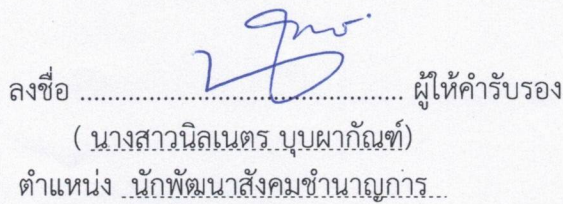 ลงชื่อ ........................................ ผู้ให้คำรับรอง
( นางสาวนิลเนตร บุบผากัณฑ์)
ตำแหน่ง นักพัฒนาสังคมชำนาญการ